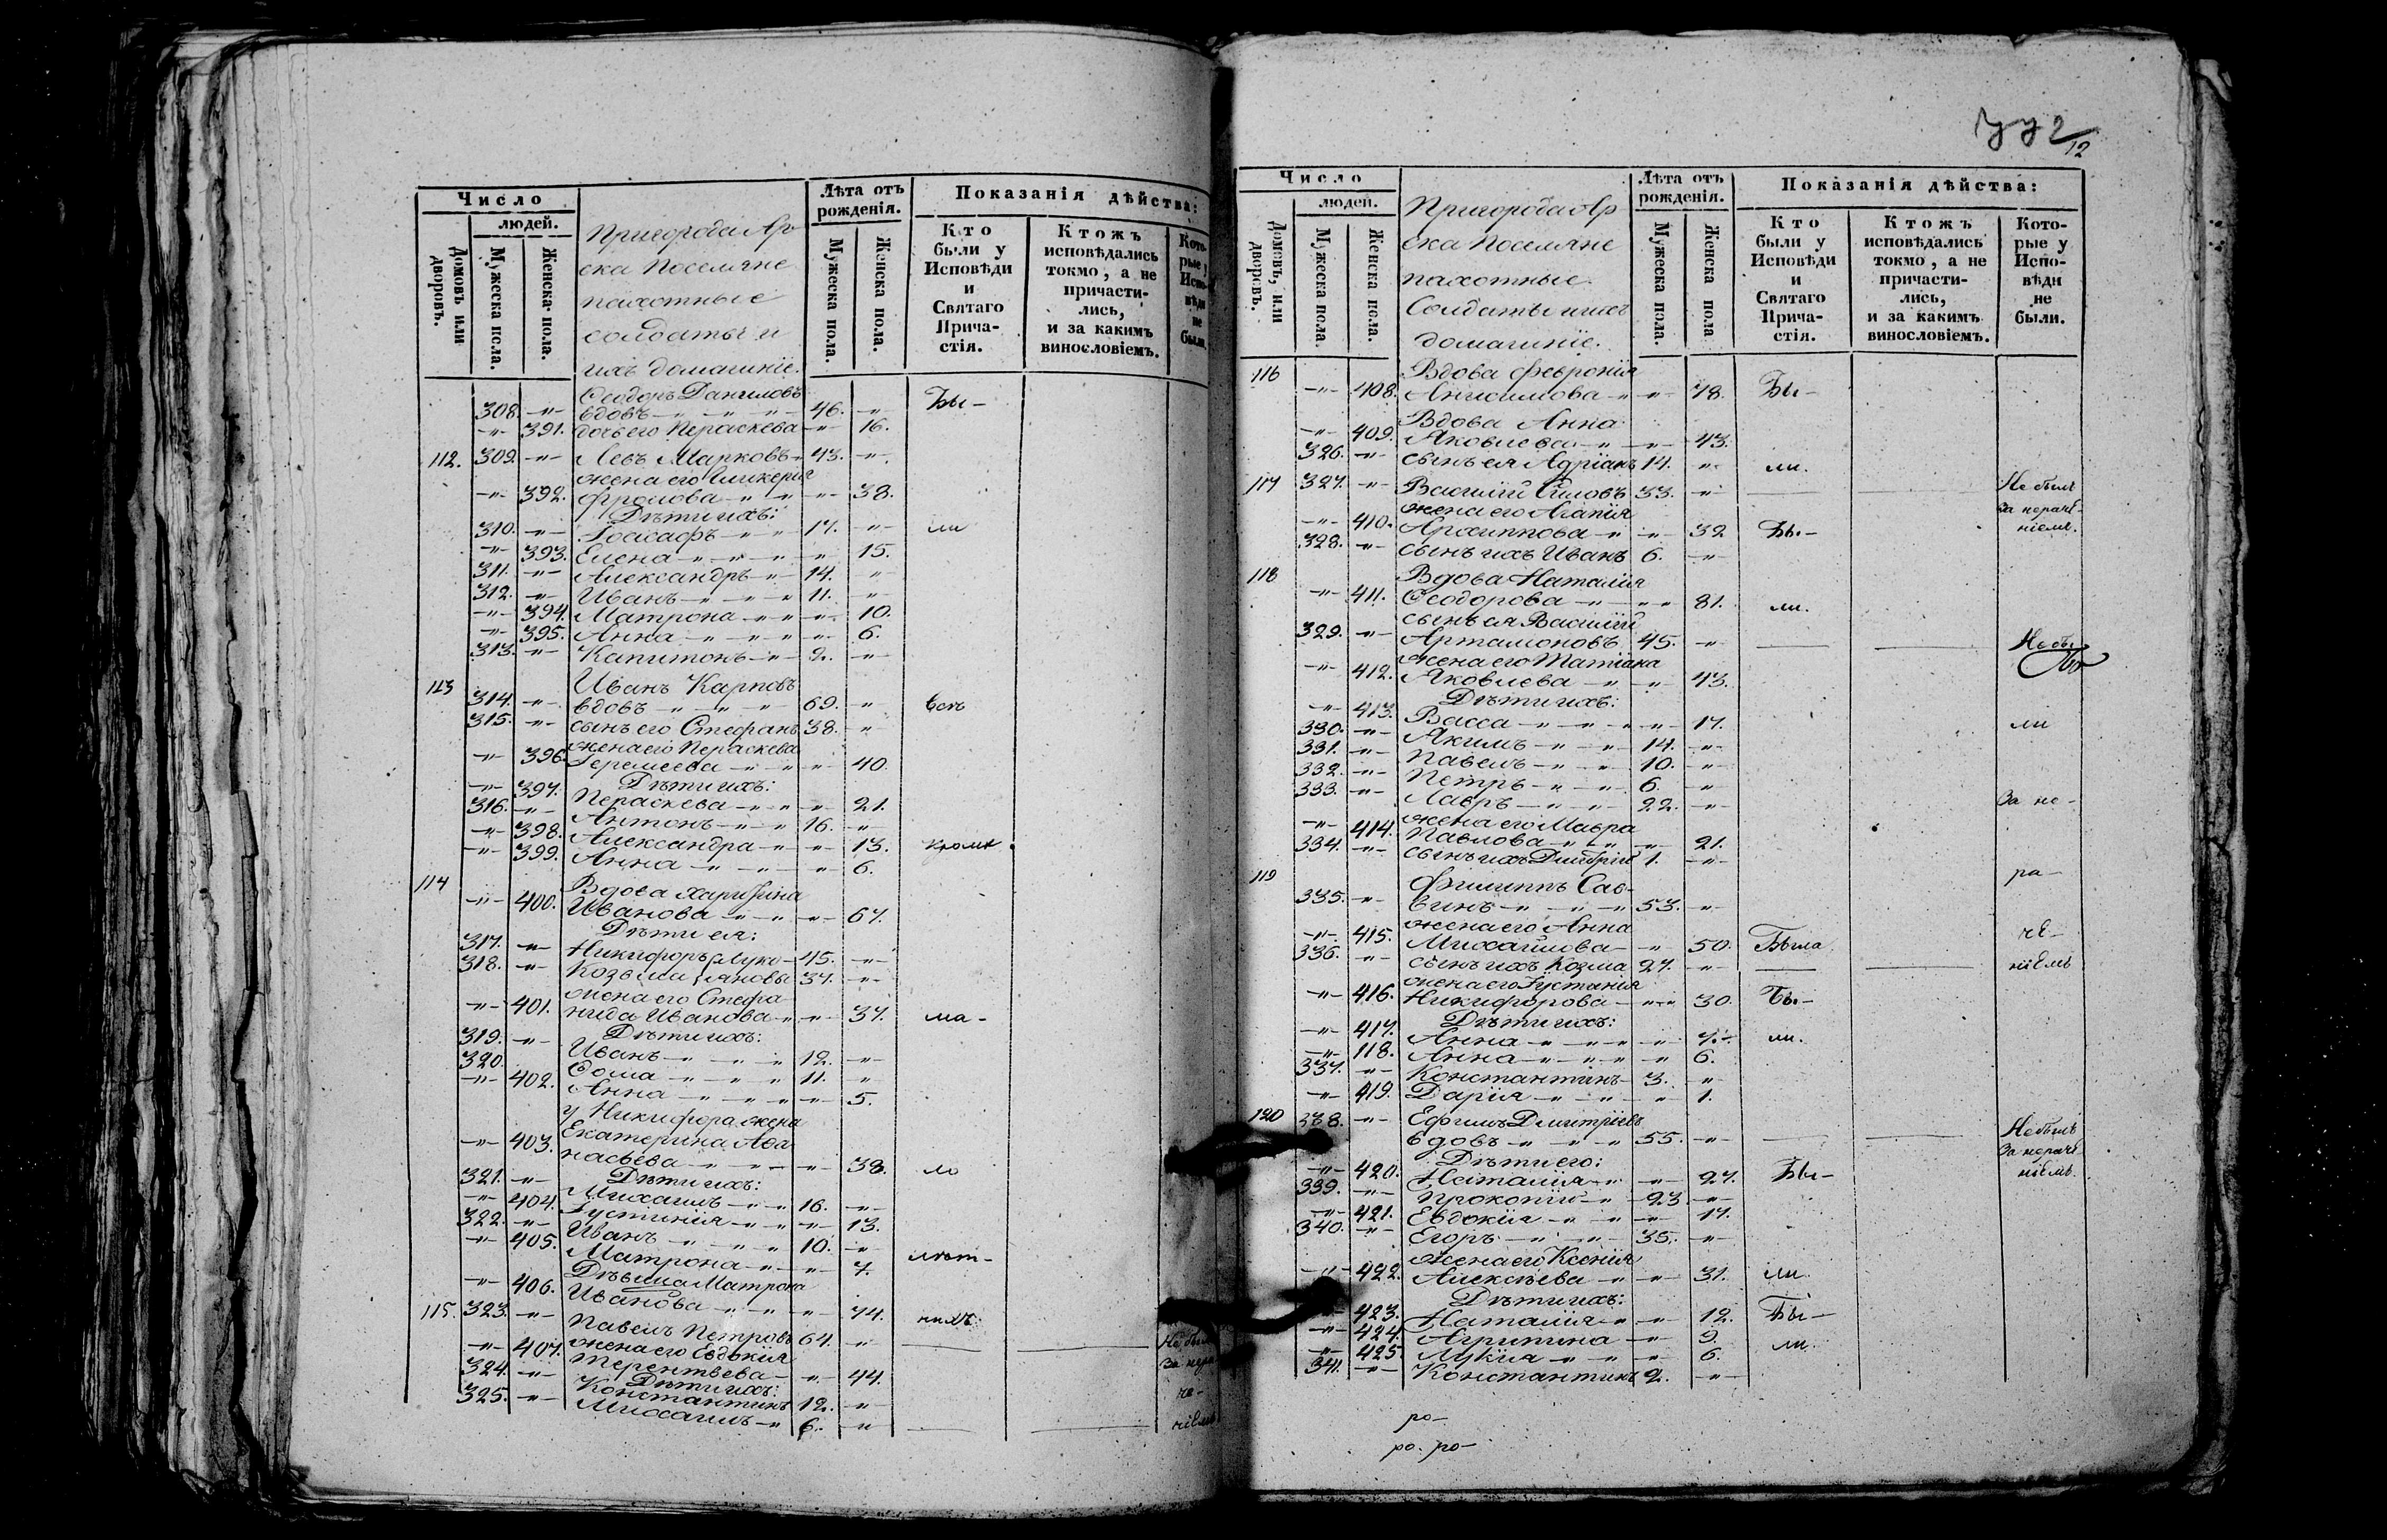 Число
людей.
Домовъ или дворовъ.
Мужеска пола.
Женска пола.
Пригорода Ар-
ска Поселяне
пахотные
солдаты и
ихъ домашніе.
Лѣта отъ рожденія.
Мужеска пола.
Женска пола.
Показанія дѣйства:
Кто были у Исповѣди и Святаго Прича-стія.
Ктожъ исповѣдались токмо, а не причасти-лись, и за какимъ винословіемъ.
Кото-рые у Испо-вѣди не были.
Ѳеодоръ Даниловъ
308. -"- вдовъ -"- 46. -"- Бы-
-"- 391. дочь его Параскева -"- 16.
112. 309. -"- Левъ Марковъ 43. -"-
жена его Гликерія
-"- 392. Фролова -"- 38.
Дѣти ихъ:
310. -"- Іоасафъ -"- 17. -"- ли
-"- 393. Елена -"- 15.
311. -"- Александръ -"- 14. -"-
312. -"- Иванъ -"- 11. -"-
-"- 394. Матрона -"- 10.
-"- 395. Анна -"- 6.
313. -"- Капитонъ -"- 2. -"-
113 Иванъ Карповъ
314. -"- вдовъ -"- 69. -"- всѣ
315. -"- сынъ его Стефанъ 38. -"-
жена его Параскева
-"- 396. Еремеева -"- 40.
Дѣти ихъ:
-"- 397. Параскева -"- 21.
316. -"- Антонъ -"- 16. -"-
-"- 398. Александра -"- 13. кромѣ
-"- 399. Анна -"- 6.
114 Вдова Харитина
-"- 400. Иванова -"- 67.
Дѣти ея:
317. -"- Никифоръ Луко- 45. -"-
318. -"- Козьма яновы 37. -"-
жена его Стефа-
-"- 401. нида Иванова -"- 37. ма-
Дѣти ихъ:
319. -"- Иванъ -"- 12. -"-
320. Ѳома -"- 11. -"-
-"- 402. Анна -"- 5.
у Никифора жена
Екатерина Аѳа-
-"- 403. насьева -"- 38. ло
Дѣти ихъ:
321. -"- Михаилъ -"- 16. -"-
-"- 404. Іустинія -"- 13.
322. -"- Иванъ -"- 10. -"-
-"- 405. Матрона -"- 7. лѣт-
Дѣвица Матрона
-"- 406. Иванова -"- 74. нихъ
115. 323. -"- Павелъ Петровъ 64. -"- Не былъ
жена его Евдокія
-"- 407. Терентьева -"- 44. за нера-
Дѣти ихъ:
324. -"- Константинъ 12. -"- че-
325. -"- Михаилъ -"- 6. -"- ніемъ
2/12
Число
людей.
Домовъ, или дворовъ.
Мужеска пола.
Женска пола.
Пригорода Ар
ска Поселяне
пахотные
Солдаты и ихъ
домашніе.
Лѣта отъ рожденія.
Мужеска пола.
Женска пола
Показанія дѣйства:
Кто были у Исповѣди и Святаго Прича-стія.
Ктожъ исповѣдались токмо, а не причасти-лись, и за какимъ винословіемъ.
Кото-рые у Испо-вѣди не были.
116 Вдова Февронія
-"- 408. -"- 78. Бы-
Вдова Анна
-"- 409. Яковлева -"- 43.
326. -"- сынъ ея Адріанъ 14. -"- ли.
117 327. -"- Василій Силовъ 33. -"- Не былъ
жена его Агапія за нераче-
-"- 410. Архиппова -"- 32 Бы- ніемъ.
328. -"- сынъ ихъ Иванъ 6. -"-
118 Вдова Наталія
-"- 411. Ѳеодорова -"- 81. ли.
сынъ ея Василій
329. -"- Артамоновъ 45. -"- Не бы
жена его Татіана
-"- 412. Яковлева -"- 43.
Дѣти ихъ:
-"- 413. Васса -"- 17. ли
330. -"- Акимъ -"- 14. -"-
331. -"- Павелъ -"- 10. -"-
332. -"- Петръ -"- 6. -"-
333. -"- Лавръ -"- 22. -"- за не-
жена его Мавра
-"- 414. Павлова -"- 21.
334. -"- сынъ ихъ Димитрій 1. -"-
119 Филиппъ Сав- ра-
335. -"- винъ -"- 53. -"-
жена его Анна
-"- 415. Михайлова -"- 50. Была че-
336. -"- сынъ ихъ Козма 27. -"- ніемъ
жена его Іустинія
-"- 416. Никифорова -"- 30. Бы-
Дѣти ихъ:
-"- 417. Анна -"- 7. ли.
-"- 118. Анна -"- 6.
337. -"- Константинъ 3. -"-
-"- 419. Дарія -"- 1.
120 338. -"- Ефимъ Димитріевъ
вдовъ -"- 55. -"- Не былъ
Дѣти его: за нераче
-"- 420. Наталія -"- 27. Бы- ніемъ.
339. -"- Прокопій -"- 23 -"-
-"- 421. Евдокія -"- 17.
340. -"- Егоръ -"- 35. -"-
жена его Ксенія
-"- 422. Алексѣева -"- 31. ли
Дѣти ихъ:
-"- 423. Наталія -"- 12. Бы-
-"- 424. Агрипина -"- 9.
-"- 425. Лукія -"- 6. ли.
341. -"- Константинъ 2. -"-
ро-
ро. ро-